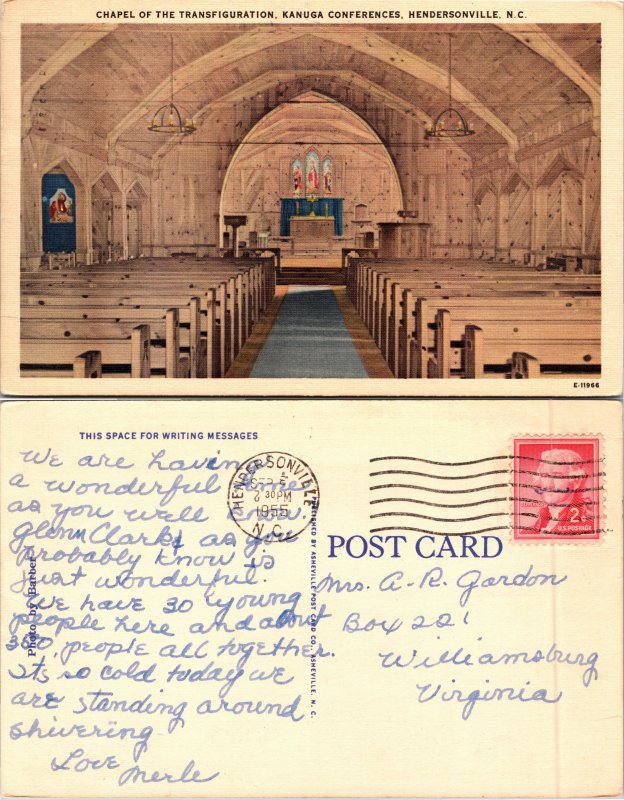 CHAPEL OF THE TRANSFIGURATION, KANUGA CONFERENCES, HENDERSONVILLE, N.C.
E-11966
THIS SPACE FOR WRITING MESSAGES
We are having
a wonderful time
as you well know.
Glenn Clark, as you
probably know is
just wonderful.
We have 30 young
people here and about
350, people all together.
Its so cold today we
are standing around
shivering.
Love
Merle
Photo by Barber
HENDERSONVILLE
SEP 5
2 30 PM
1955
N.C.
PUBLISHED BY ASHEVILLE POST CARD CO., ASHEVILLE, N. C.
2¢
U.S. POSTAGE
POST CARD
Mrs. A-R. Gordon
Box 221
Williamsburg
Virginia